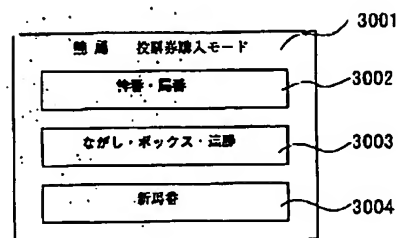 競馬 投票券購入モード 3001
枠番・馬番 3002
ながし・ボックス・応勝 3003
新馬番 3004